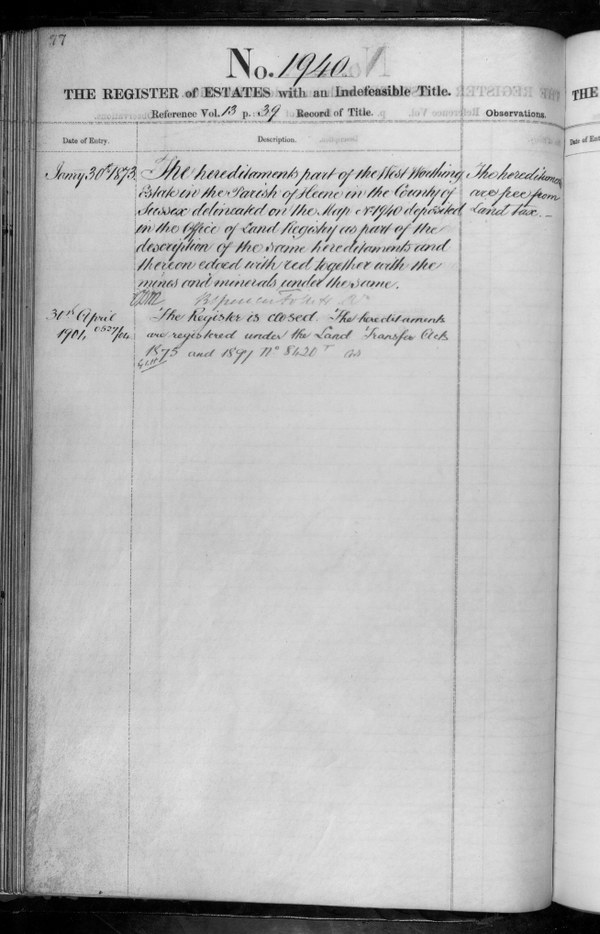 77
No. 1940
THE REGISTER of ESTATES with an Indefeasible Title.
Reference Vol. 13 p. 39 Record of Title.
Observations.
Date of Entry.
Description.
30th 1873
The hereditaments part of the West Worthing
Estate in the Parish of Heene in the County of
Sussex delineated on the Map No 1940 deposited
in the Office of Land Registry as part of the
description of the same hereditaments and
thereon edged with red together with the
mines and minerals under the same.
The hereditaments
are free from
Land Tax. –
April
1901
The Register is closed. The hereditaments
are registered under the Land Transfer Acts
1875 and 1897 No 8420
THE
Date of Ent